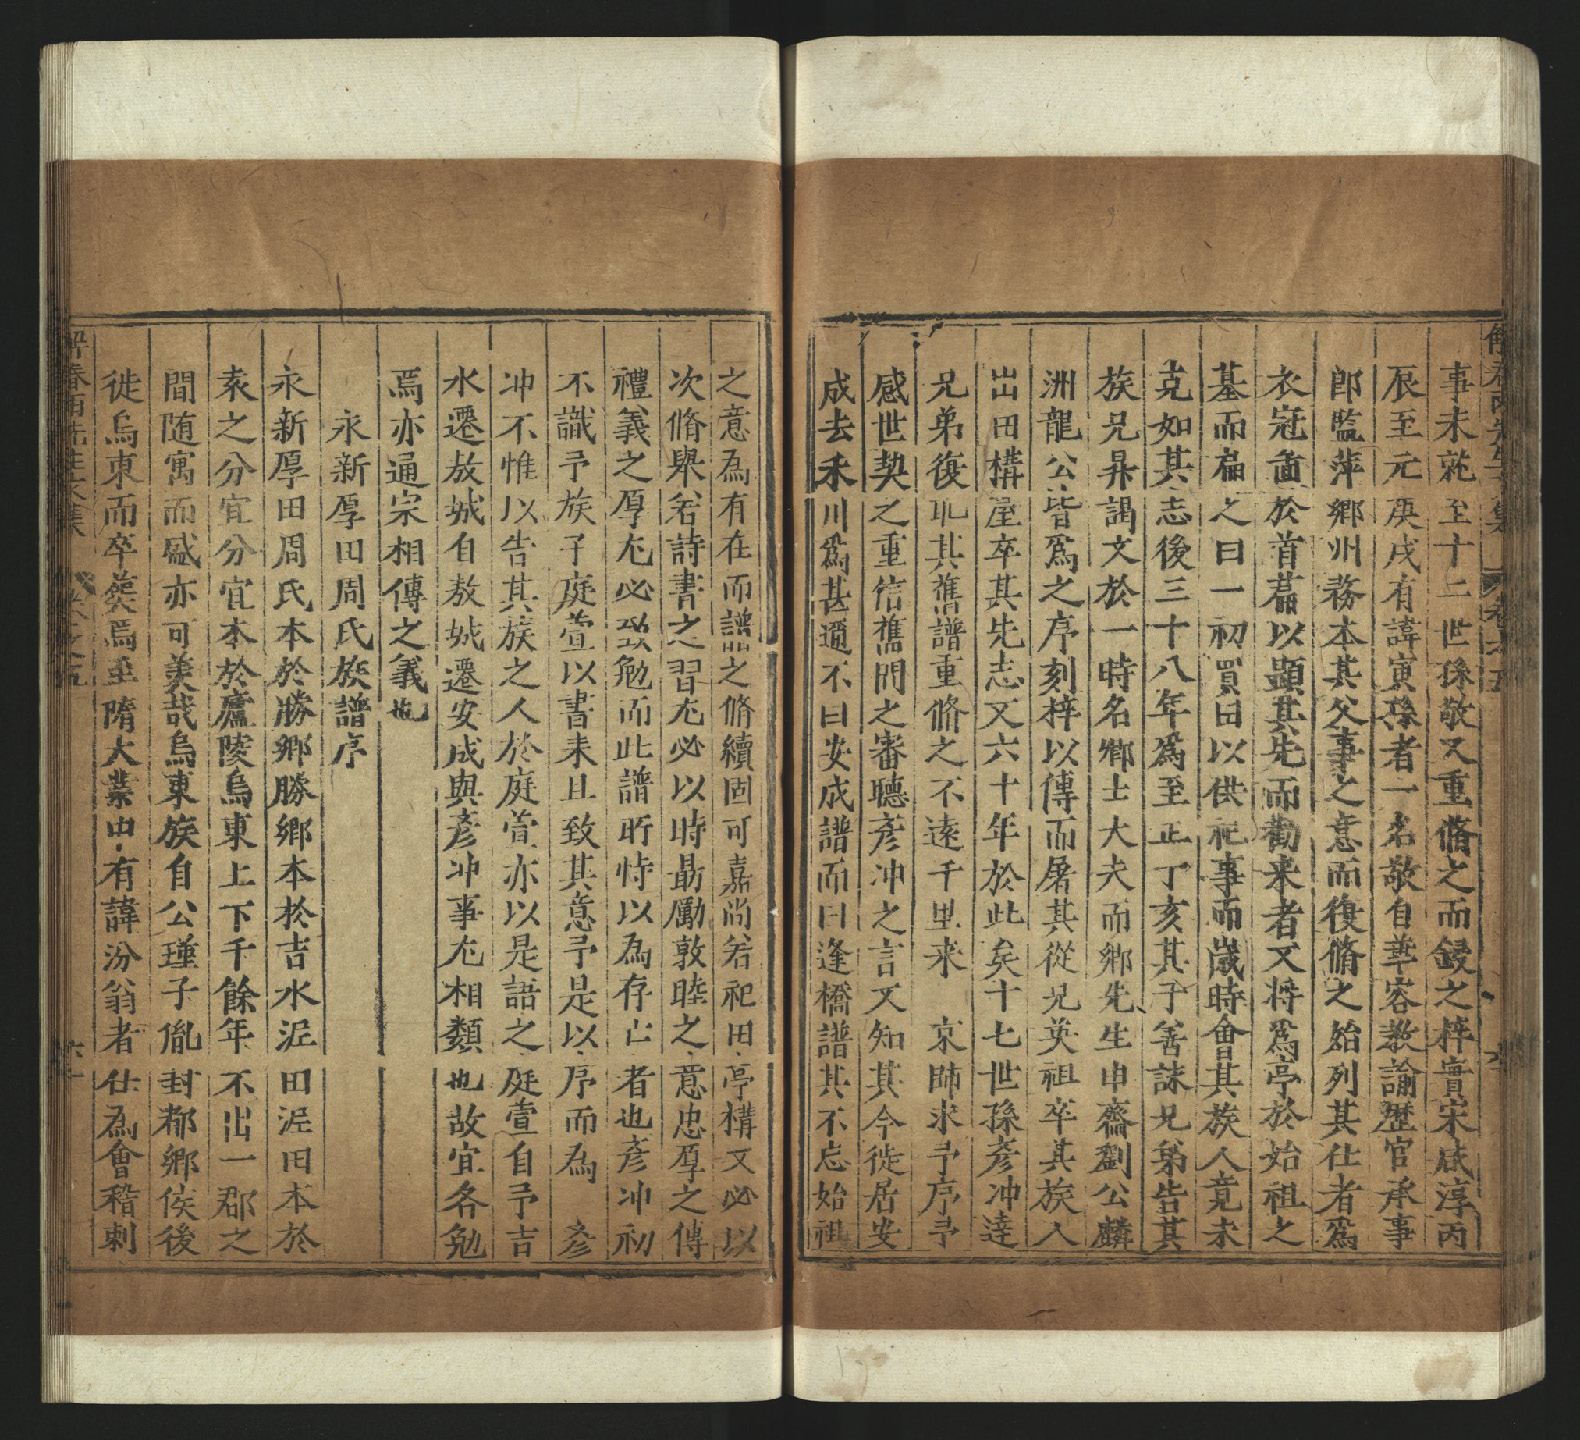 事未就至十二世孫敬又重脩之而鋟之梓實宋咸淳丙
辰至元庚戌有諱寅孫者一名敬自華容教諭歷官承事
郎監萍鄉州務本其父事之意而復脩之始列其仕者爲
衣冠啚於首萹以顕其先而勸来者又將爲亭於始祖之
墓而扁之曰一初買田以供祀事而歲時會其族人竟未
克如其志後三十八年爲至正丁亥其子善誄兄弟告其
族兄昇謁文於一時名鄉士大夫而鄉先生申齋劉公麟
洲龍公皆爲之序刻梓以傳而屠其從兄英祖卒其族人
出田構屋卒其先志又六十年於此矣十七世孫彥冲逹
兄弟復以其舊譜重脩之不逺千里来 京師求予序予
感世契之重信舊問之審聽彥冲之言又知其今徙居安
成去禾川爲甚邇不曰安成譜而曰逢橋譜其不忘始祖
之意爲有在而譜之脩續固可嘉尚若祀田亭構又必以
次脩舉若詩書之習尤必以時勗勵敦睦之意忠厚之傳
禮義之厚尤必致勉而此譜所恃以為存亡者也彥冲初
不識予族子庭萱以書来且致其意予是以序而為 彥
冲不惟以告其族之人於庭萱亦以是語之庭萱自予吉
水遷敖城自敖城遷安成與彥冲事尤相類也故宜各勉
焉亦通宗相傳之義也
永新厚田周氏族譜序
永新厚田周氏本於勝鄉勝鄉本於吉水泥田泥田本於
袁之分宜分宜本於廬陵烏東上下千餘年不出一郡之
間随寓而盛亦可美哉烏東族自公瑾子胤封都鄉侯後
徙烏東而卒葬焉至隋大業中有諱汾翁者仕為會稽刺